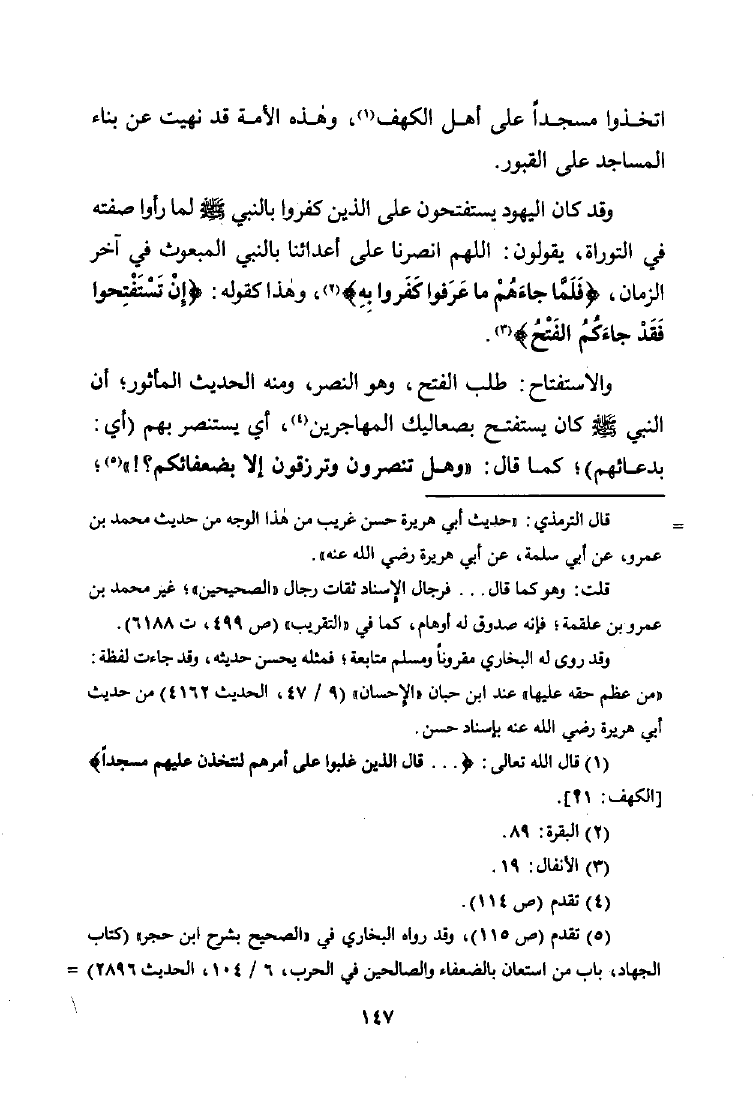 اتخذوا مسجداً على أهل الكهف(١)، وهٰذه الأمة قد نهيت عن بناء
المساجد على القبور.
وقد كان اليهود يستفتحون على الذين كفروا بالنبي ﷺ لما رأوا صفته
في التوراة، يقولون: اللهم انصرنا على أعدائنا بالنبي المبعوث في آخر
الزمان، ﴿فَلَمَّا جاءَهُمْ ما عَرَفوا كَفَروا بِهِ﴾(٢)، وهٰذا كقوله: ﴿إِنْ تَسْتَفْتِحوا
فَقَدْ جاءَكُمُ الفَتْحُ﴾(٣).
والاستفتاح: طلب الفتح، وهو النصر، ومنه الحديث المأثور؛ أن
النبي ﷺ كان يستفتح بصعاليك المهاجرين(٤)، أي يستنصر بهم (أي:
بدعائهم)؛ كما قال: «وهل تنصرون وترزقون إلا بضعفائكم؟!»(٥)؛
= قال الترمذي: «حديث أبي هريرة حسن غريب من هٰذا الوجه من حديث محمد بن
عمرو، عن أبي سلمة، عن أبي هريرة رضي الله عنه».
قلت: وهو كما قال... فرجال الإسناد ثقات رجال «الصحيحين»؛ غير محمد بن
عمرو بن علقمة؛ فإنه صدوق له أوهام، كما في «التقريب» (ص ٤٩٩، ت ٦١٨٨).
وقد روى له البخاري مقروناً ومسلم متابعة؛ فمثله يحسن حديثه، وقد جاءت لفظة:
«من عظم حقه عليها» عند ابن حبان «الإحسان» (٩ / ٤٧، الحديث ٤١٦٢) من حديث
أبي هريرة رضي الله عنه بإسناد حسن.
(١) قال الله تعالى: ﴿... قال الذين غلبوا على أمرهم لنتخذن عليهم مسجداً﴾
[الكهف: ٢١].
(٢) البقرة: ٨٩.
(٣) الأنفال: ١٩.
(٤) تقدم (ص ١١٤).
(٥) تقدم (ص ١١٥)، وقد رواه البخاري في «الصحيح بشرح ابن حجر» (كتاب
الجهاد، باب من استعان بالضعفاء والصالحين في الحرب، ٦ / ١٠٤، الحديث ٢٨٩٦) =
١٤٧